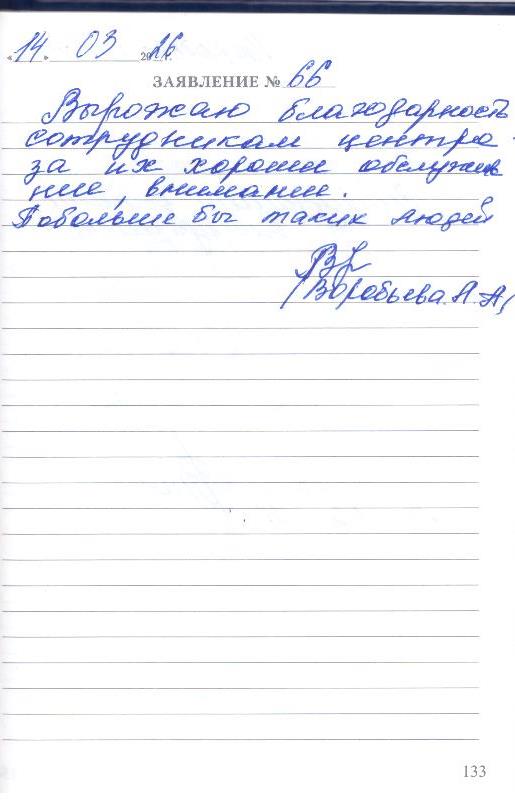 «14» 03 2016 г.
ЗАЯВЛЕНИЕ № 66
Вырожаю благодарность
сотрудникам центра
за их хорошии обслужив
ние, внимании.
Побольше бы таких людей
(Воробьева А.А)
133